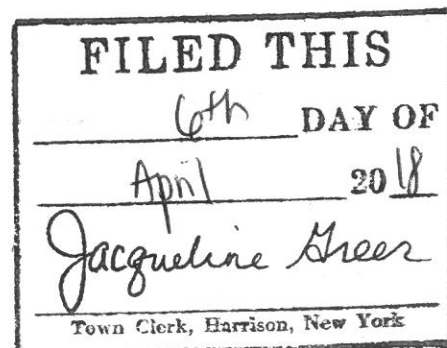 FILED THIS
6th DAY OF
April 2018
Jacqueline Greer
Town Clerk, Harrison, New York